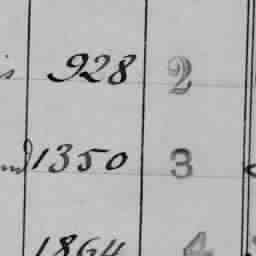 928 2
1350 3
1864 4